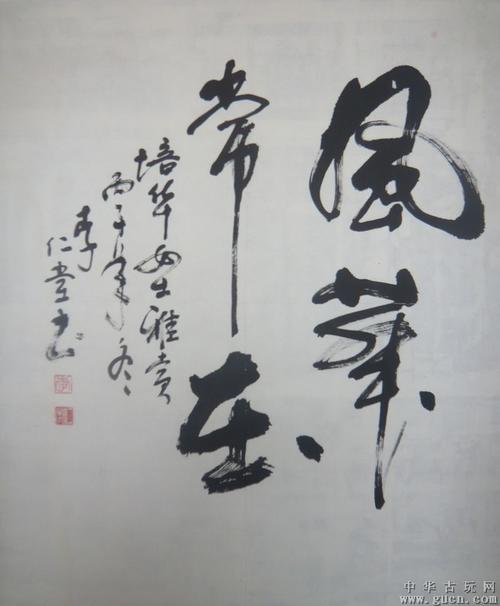 風華
常在
培华女士雅赏
丙子年冬
李仁堂书
中华古玩网
www.gucn.com